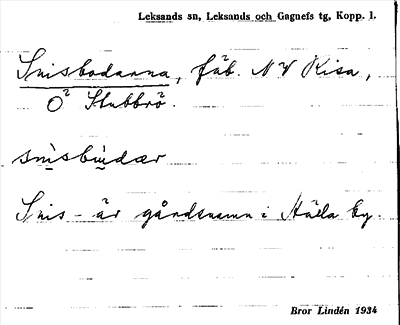 Leksands sn, Leksands och Gagnefs tg, Kopp. l.
Snisbodarna, fäb. NV Risa,
Ö Stubbrö.
snìsbùdær
Snis- är gårdsnamn i Hälla by.
Bror Lindén 1934